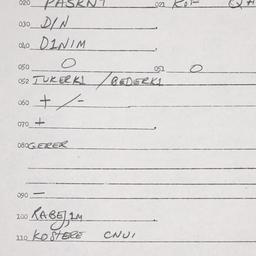 020 PASKNT 021
030 D/N
040 D1NIM
050 O 051 O
052 TUKERKI / BEDERKI
060 + / -
070 +
080 GERER
090 -
100
110 KOSTERE CNUI